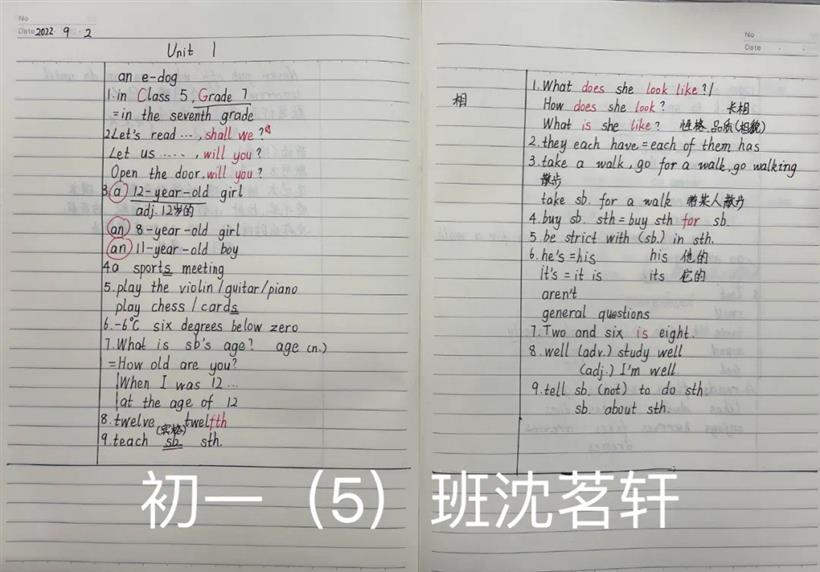 No
Date 2022 9 2
Unit 1
an e-dog
1. in Class 5, Grade 7
=in the seventh grade
2Let's read ..., shall we?
Let us ....., will you?
Open the door. will you?
3.a 12-year-old girl
adj. 12岁的
an 8-year-old girl
an 11-year-old boy
4.a sports meeting
5.play the violin/guitar/piano
play chess / cards
6.-6℃ six degrees below zero
7.What is sb's age? age (n.)
=How old are you?
When I was 12 ...
at the age of 12
8.twelve twelfth
(宾格)
9.teach sb. sth.
No
Date
相
1.What does she look like?/
How does she look? 长相
What is she like? 性格、品质(相貌)
2.they each have=each of them has
3.take a walk, go for a walk, go walking
散步
take sb. for a walk 带某人散步
4.buy sb. sth=buy sth for sb.
5.be strict with (sb.) in sth.
6.he's=his his 他的
it's=it is its 它的
aren't
general questions
7.Two and six is eight.
8.well (adv.) study well
(adj.) I'm well.
9.tell sb. (not) to do sth.
sb. about sth.
初一（5）班沈茗轩